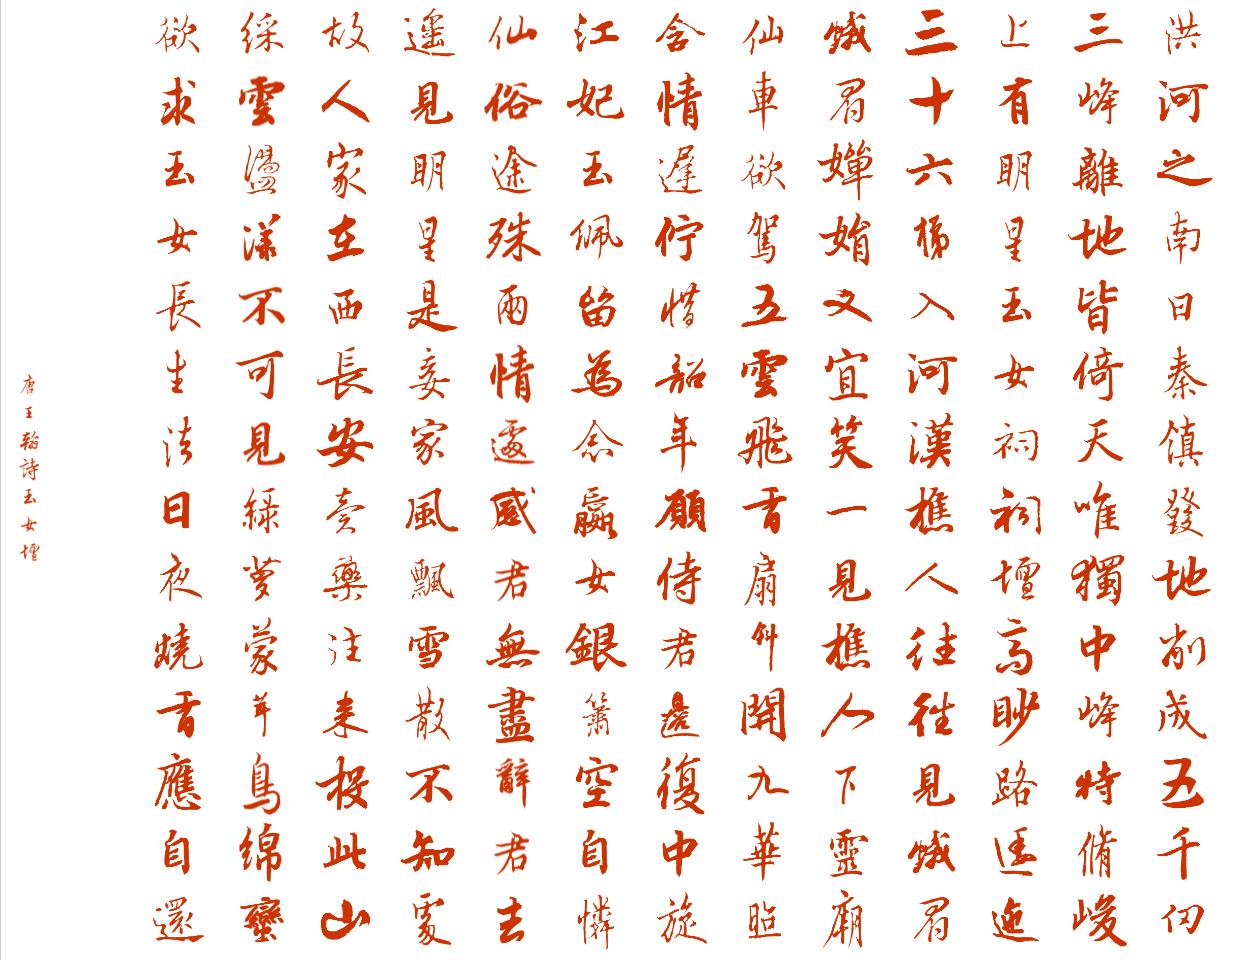 洪河之南曰秦鎮發地削成五千仞
三峰離地皆倚天唯獨中峰特脩峻
上有明星玉女祠祠壇高眇路逶迤
三十六梯入河漢樵人往往見蛾眉
蛾眉嬋娟又宜笑一見樵人下靈廟
仙車欲駕五雲飛香扇斜開九華照
含情遲佇惜韶年願侍君邊復中旋
江妃玉佩留為念嬴女銀簫空自憐
仙俗途殊兩情遽感君無盡辭君去
遙見明星是妾家風飄雪散不知處
故人家在西長安賣藥往來投此山
綵雲盪漾不可見綠蘿蒙茸鳥綿蠻
欲求玉女長生法日夜燒香應自還
唐王翰詩玉女壇